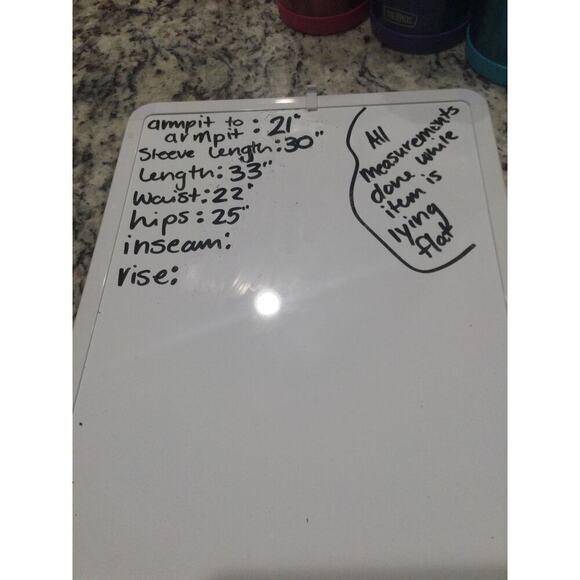 THERMOS
armpit to
armpit : 21"
Sleeve Length: 30"
Length: 33"
Waist: 22"
hips: 25"
inseam:
rise:
All
measurements
done while
item is
lying
flat